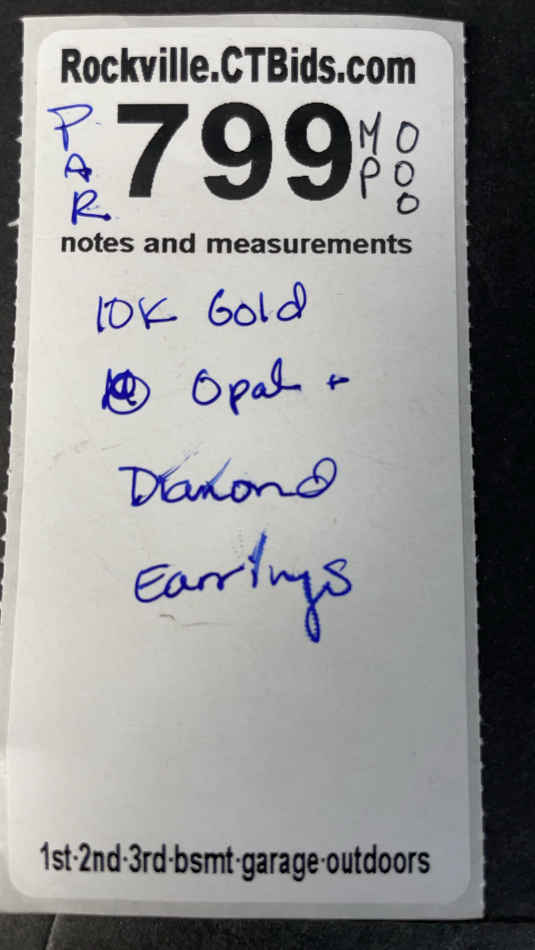 Rockville.CTBids.com
PAR 799 MP OOO
notes and measurements
10K Gold
Opal +
Diamond
Earrings
1st·2nd·3rd·bsmt·garage·outdoors